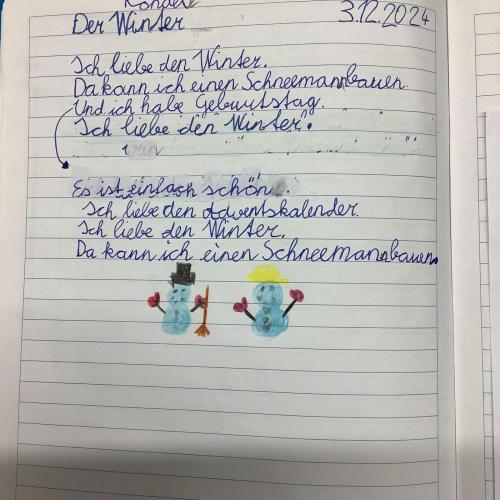 Rondell
Der Winter 3.12.2024
Ich liebe den Winter.
Da kann ich einen Schneemann bauen.
Und ich habe Geburtstag.
Ich liebe den Winter.
Es ist einfach schön.
Ich liebe den Adventskalender.
Ich liebe den Winter.
Da kann ich einen Schneemann bauen.